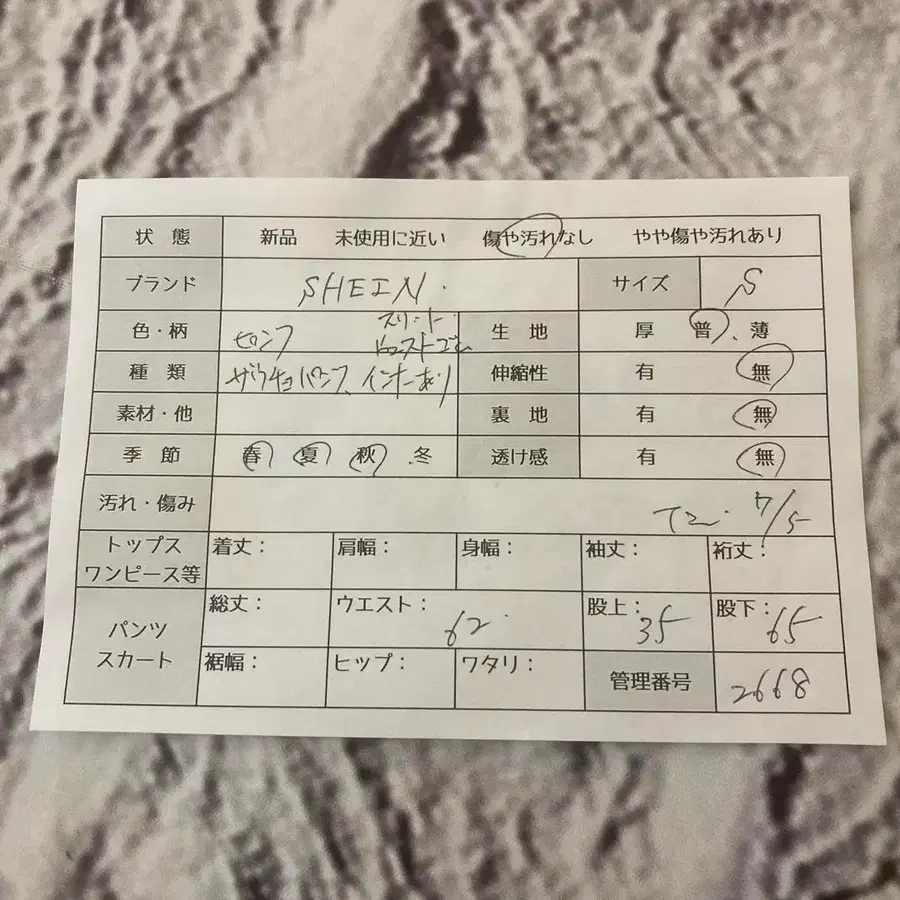 状態 新品 未使用に近い 傷や汚れなし やや傷や汚れあり
ブランド SHEIN. サイズ S
色・柄 ピンク スリット. ウエストゴム 生地 厚 普、薄
種類 ガウチョパンツ インナーあり 伸縮性 有 無
素材・他 裏地 有 無
季節 春 夏 秋 冬 透け感 有 無
汚れ・傷み 7/5
トップス ワンピース等 着丈： 肩幅： 身幅： 袖丈： 裄丈：
パンツ スカート 総丈： ウエスト： 62 股上： 35 股下： 65
裾幅： ヒップ： ワタリ： 管理番号 2668